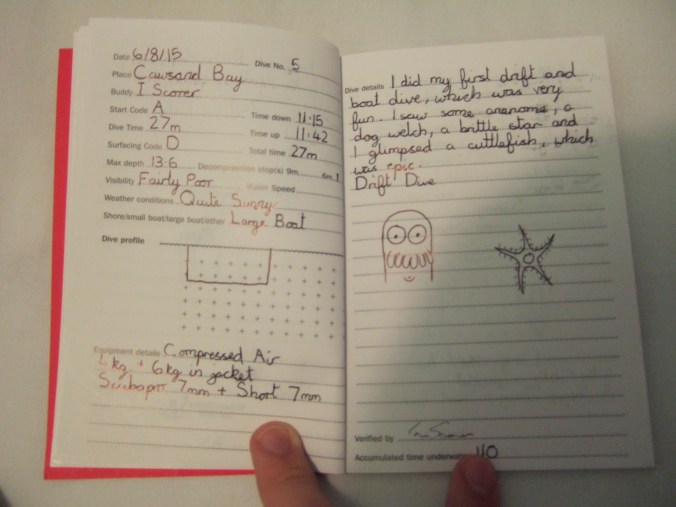 Date 6/8/15 Dive No. 5
Place Cawsand Bay
Buddy I Scorer
Start Code A Time down 11:15
Dive Time 27m Time up 11:42
Surfacing Code D Total time 27m
Max depth 13.6 Decompression stop(s) 9m 6m
Visibility Fairly Poor Water Speed
Weather conditions Quite Sunny
Shore/small boat/large boat/other Large Boat
Dive profile
Equipment details Compressed Air
4kg + 6kg in jacket
7mm + Short 7mm
Dive details I did my first drift and
boat dive, which was very
fun. I saw some anenomie, a
dog welch, a brittle star and
I glimpsed a cuttlefish, which
was epic.
Drift Dive
Verified by
Accumulated time underwater 110